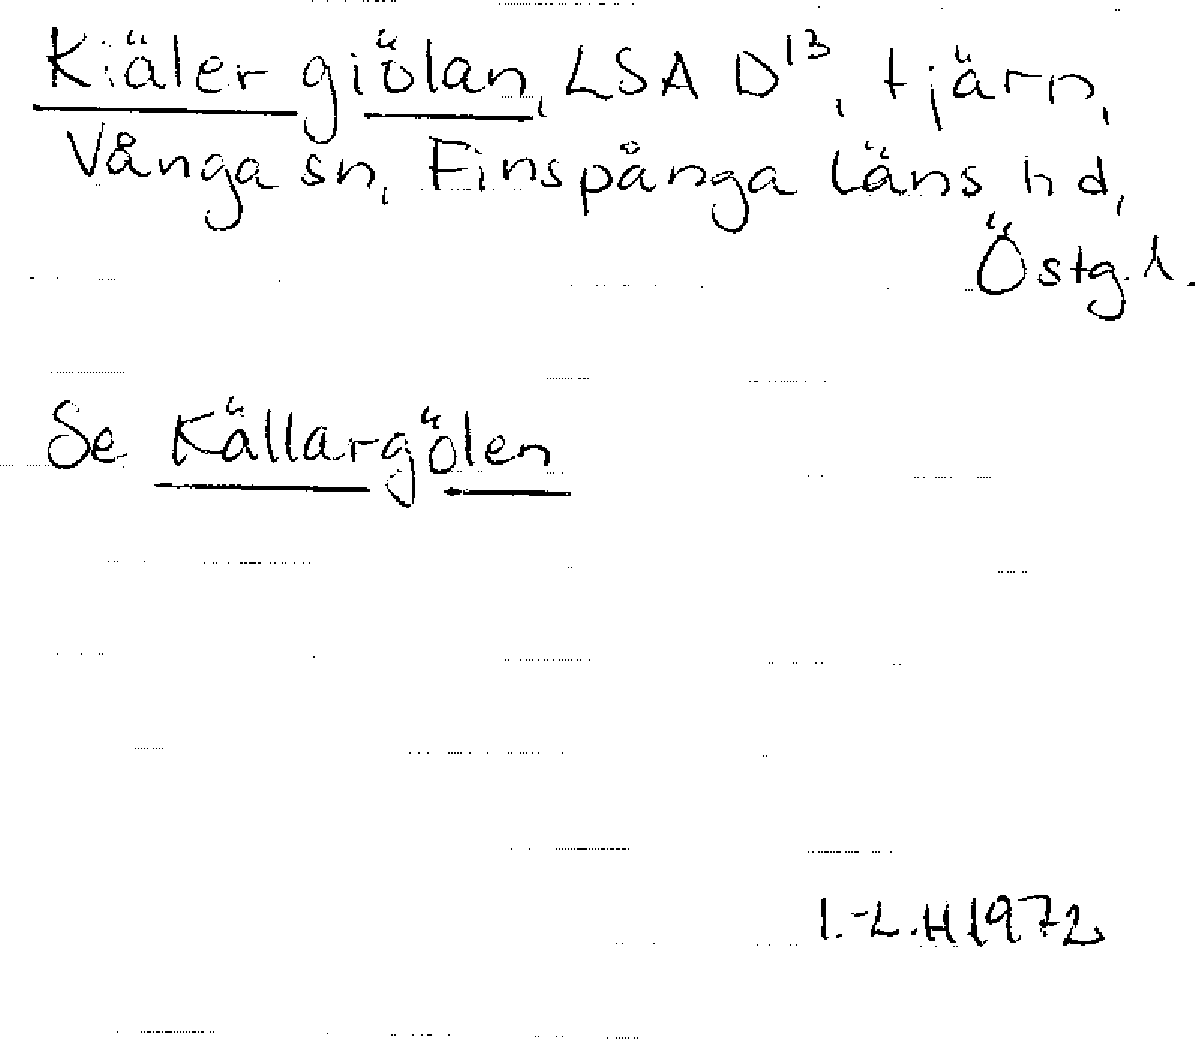 Kiäler giölan, LSA D13, tjärn,
Vånga sn, Finspånga läns hd,
Östg. l.
Se Källargölen
I.-L.H 1972